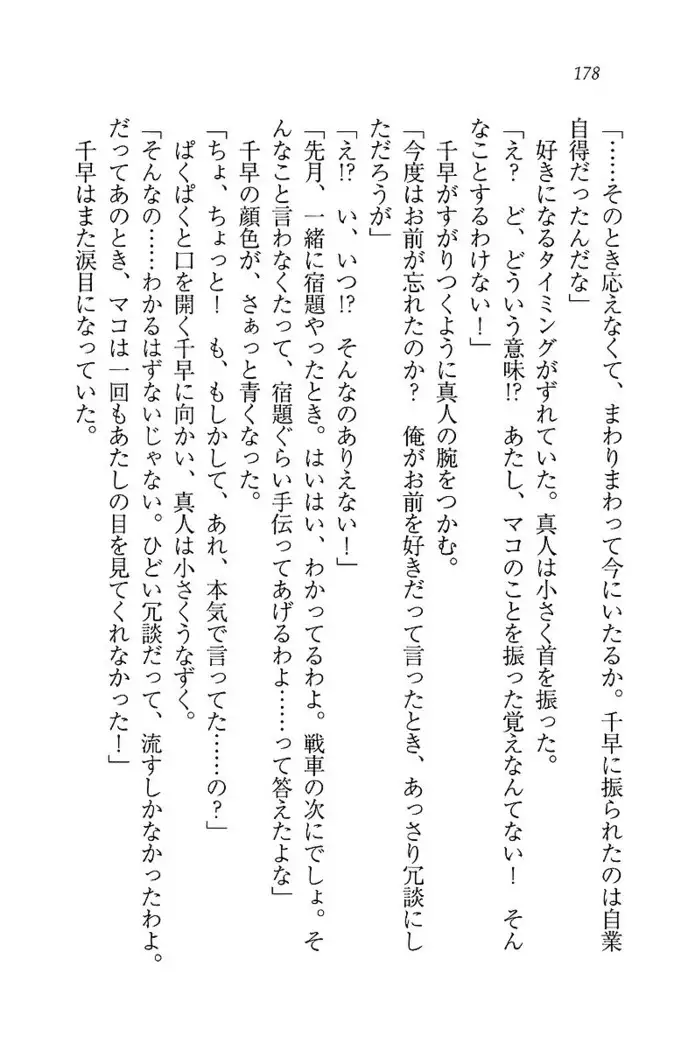 178
「……そのとき応えなくて、まわりまわって今にいたるか。千早に振られたのは自業
自得だったんだな」
好きになるタイミングがずれていた。真人は小さく首を振った。
「え？　ど、どういう意味!?　あたし、マコのことを振った覚えなんてない！　そん
なことするわけない！」
千早がすがりつくように真人の腕をつかむ。
「今度はお前が忘れたのか？　俺がお前を好きだって言ったとき、あっさり冗談にし
ただろうが」
「え!?　い、いつ!?　そんなのありえない！」
「先月、一緒に宿題やったとき。はいはい、わかってるわよ。戦車の次にでしょ。そ
んなこと言わなくたって、宿題ぐらい手伝ってあげるわよ……って答えたよな」
千早の顔色が、さぁっと青くなった。
「ちょ、ちょっと！　も、もしかして、あれ、本気で言ってた……の？」
ぱくぱくと口を開く千早に向かい、真人は小さくうなずく。
「そんなの……わかるはずないじゃない。ひどい冗談だって、流すしかなかったわよ。
だってあのとき、マコは一回もあたしの目を見てくれなかった！」
千早はまた涙目になっていた。